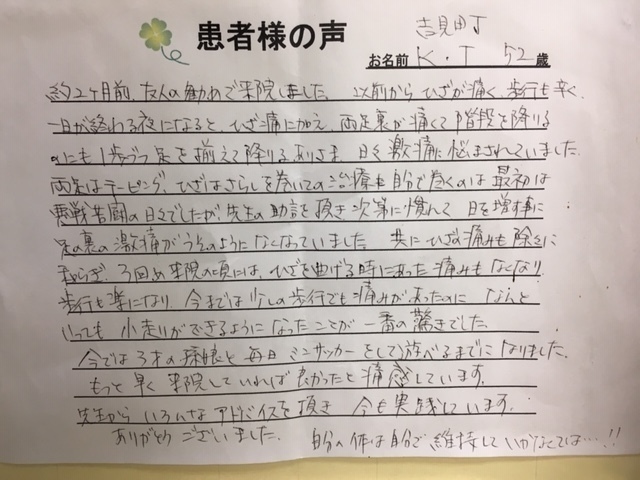 患者様の声
吉見町
お名前 K・T 52 歳
約2ヶ月前、友人の勧めで来院しました。以前からひざが痛く、歩行も辛く、
一日が終わる夜になると、ひざ痛に加え、両足裏が痛くて階段を降りる
のにも1歩づつ足を揃えて降りるありさま、日々激痛に悩まされていました。
両足はテーピング、ひざはさらしを巻いての治療も自分で巻くのは最初は
悪戦苦闘の日々でしたが、先生の助言を頂き次第に慣れて 日を増す事に
足の裏の激痛がうそのようになくなっていました。共にひざの痛みも除々に
和らぎ、3回め来院の頃には、ひざを曲げる時にあった痛みもなくなり
歩行も楽になり、今までは少しの歩行でも痛みがあったのに なんと
いっても 小走りができるようになったことが一番の驚きでした。
今では3才の孫娘と毎日ミニサッカーをして遊べるまでになりました。
もっと早く来院していれば良かったと痛感しています。
先生からいろんなアドバイスを頂き 今も実践しています。
ありがとうございました。 自分の体は自分で維持していかなくては…!!